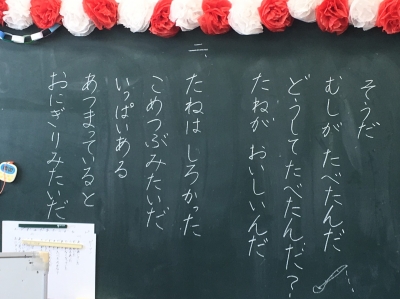 そうだ
むしが たべたんだ
どうしてたべたんだ？
たねが おいしいんだ
二、
たねは しろかった
こめつぶみたいだ
いっぱいある
あつまっていると
おにぎりみたいだ